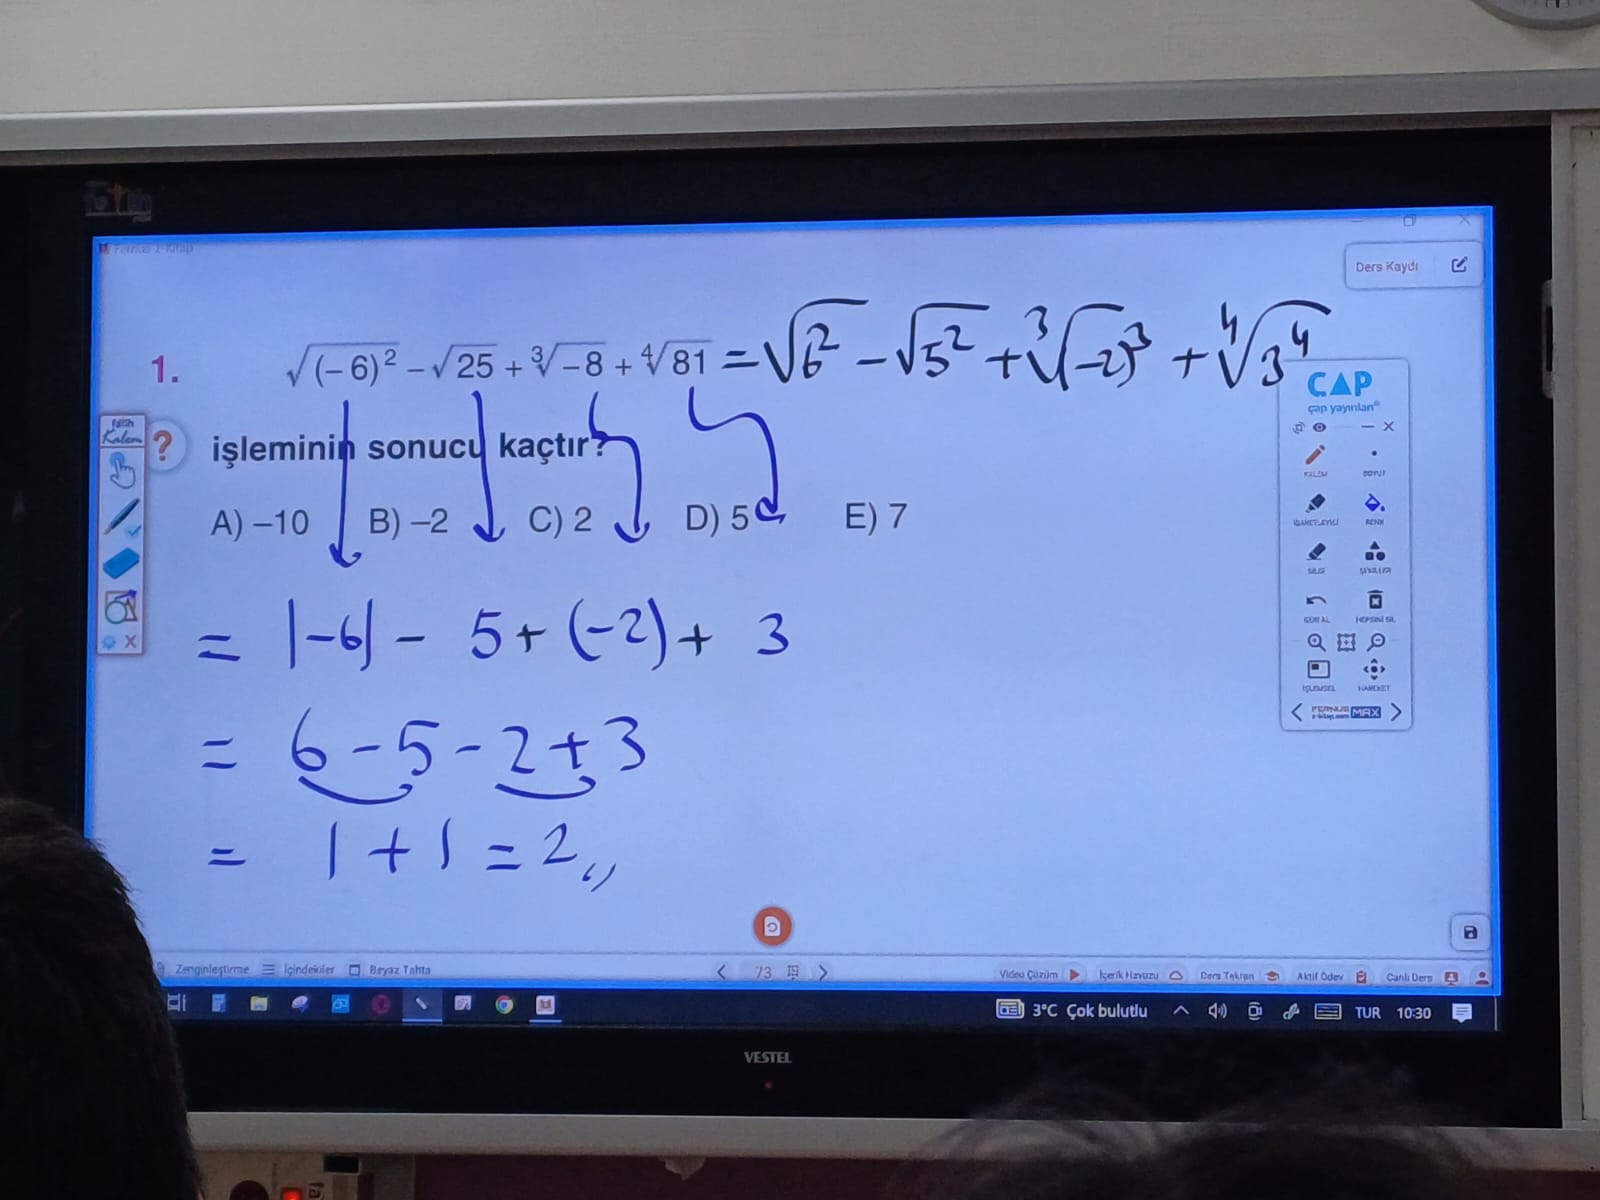 Fernus Z-Kitap
Ders Kaydı
1. √(−6)² − √25 + ³√−8 + ⁴√81 = √6² − √5² + ³√(−2)³ + ⁴√3⁴
? işleminin sonucu kaçtır?
A) −10 B) −2 C) 2 D) 5 E) 7
= |−6| − 5 + (−2) + 3
= 6 − 5 − 2 + 3
= 1 + 1 = 2,,
fatih
Kalem
ÇAP
çap yayınları®
KALEM BOYUT
İŞARETLEYİCİ RENK
SİLGİ ŞEKİLLER
GERİ AL HEPSİNİ SİL
İŞLEMSEL HAREKET
FERNUS
z-kitap.com MAX
Zenginleştirme İçindekiler Beyaz Tahta 73 Video Çözüm İçerik Havuzu Ders Tekrarı Aktif Ödev Canlı Ders
3°C Çok bulutlu TUR 10:30
VESTEL